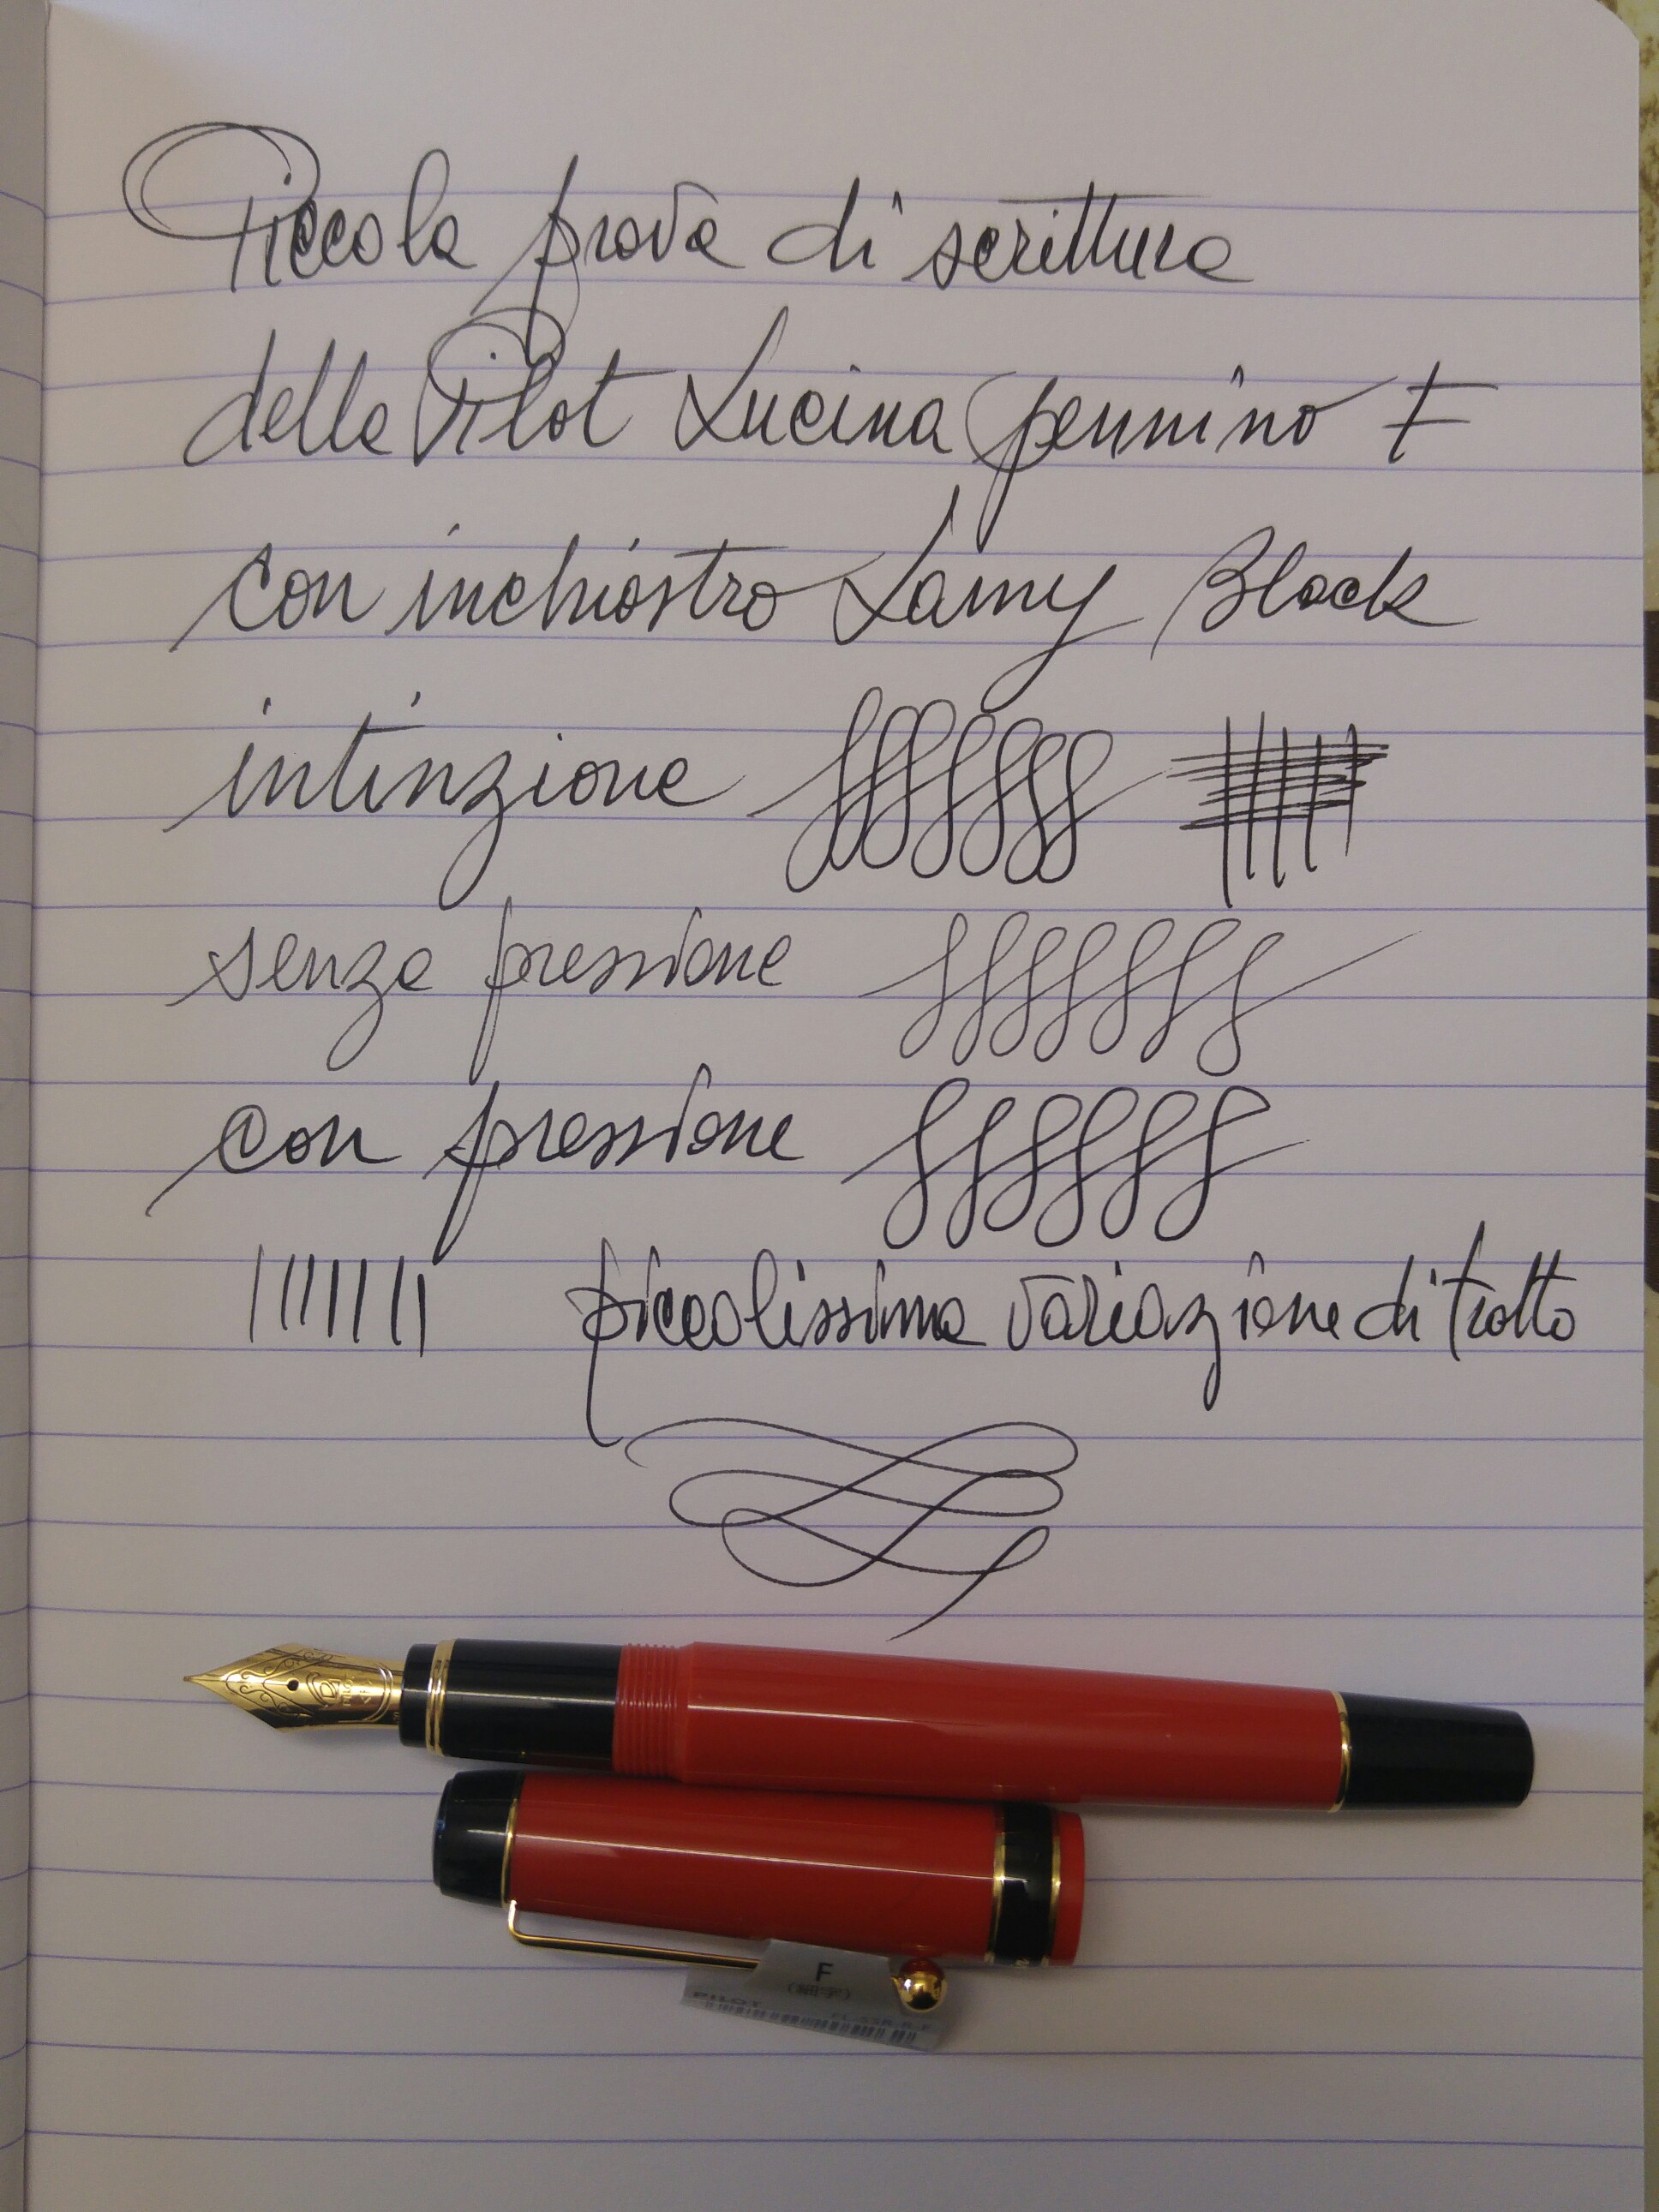 Piccola prova di scrittura
della Pilot Lucina pennino F
con inchiostro Lamy Black
intinzione
senza pressione
con pressione
piccolissima variazione di tratto
F
(細字)
PILOT